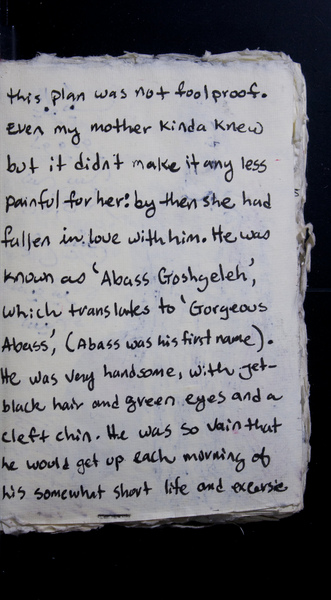 this plan was not foolproof.
Even my mother kinda knew
but it didn't make it any less
painful for her: by then she had
fallen in love with him. He was
known as 'Abass Goshgeleh',
which translates to 'Gorgeous
Abass', (Abass was his first name).
He was very handsome, with jet-
black hair and green eyes and a
cleft chin. He was so vain that
he would get up each morning of
his somewhat short life and excersie